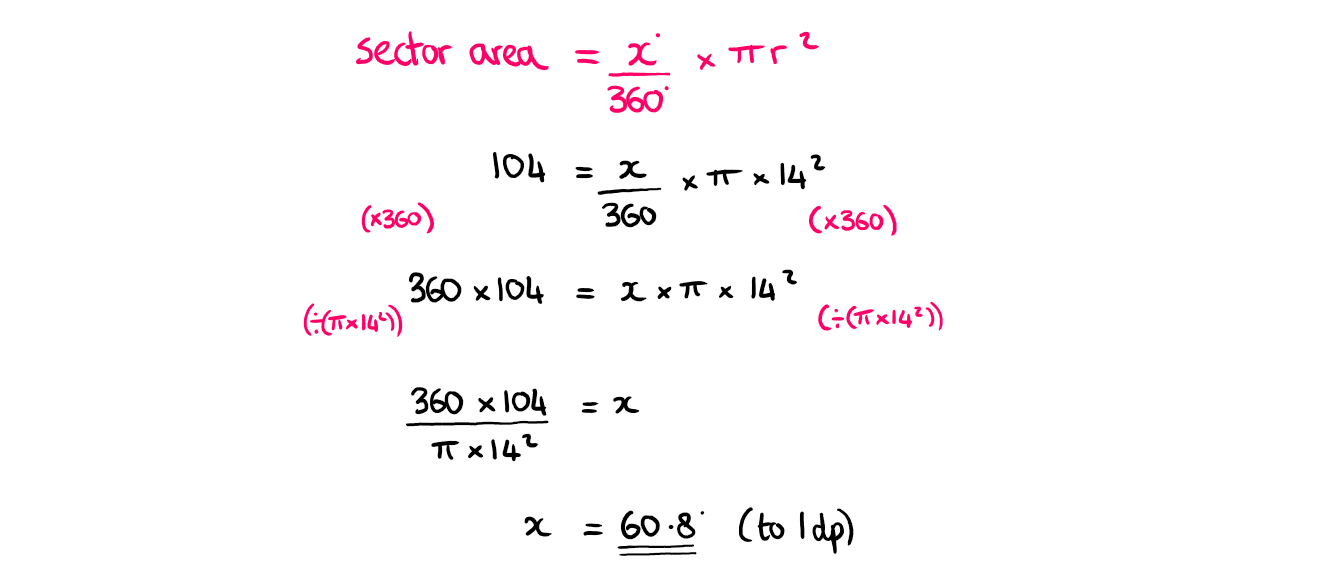 sector area = x° / 360° × πr²
104 = x / 360 × π × 14²
(×360) (×360)
360 × 104 = x × π × 14²
(÷(π×14²)) (÷(π×14²))
360 × 104 / π × 14² = x
x = 60.8° (to 1dp)